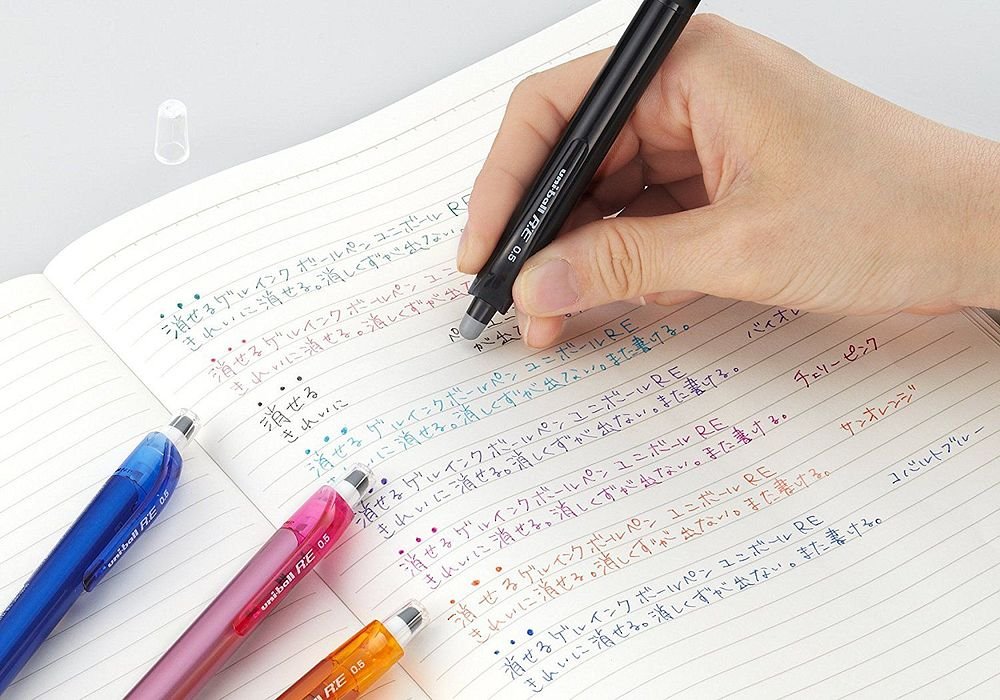 消せるゲルインクボールペン ユニボール RE
きれいに消せる。消しくずが出ない。
消せるゲルインクボールペン ユニ
きれいに消せる。消しくずが
消せる
きれいに
ペ
が出
消せるゲルインクボールペン ユニボール RE
きれいに消せる。消しくずが出ない。また書ける。
消せるゲルインクボールペン ユニボール RE
きれいに消せる。消しくずが出ない。また書ける。
消せるゲルインクボールペン ユニボール RE
きれいに消せる。消しくずが出ない。また書ける。
消せるゲルインクボールペン ユニボール RE
きれいに消せる。消しくずが出ない。また書ける。
消せるゲルインクボールペン ユニボール RE
きれいに消せる。消しくずが出ない。また書ける。
バイオレ
チェリーピンク
サンオレンジ
コバルトブルー
uni-ball R:E 0.5
uni-ball R:E 0.5
uni-ball R:E 0.5
uni-ball R:E 0.5